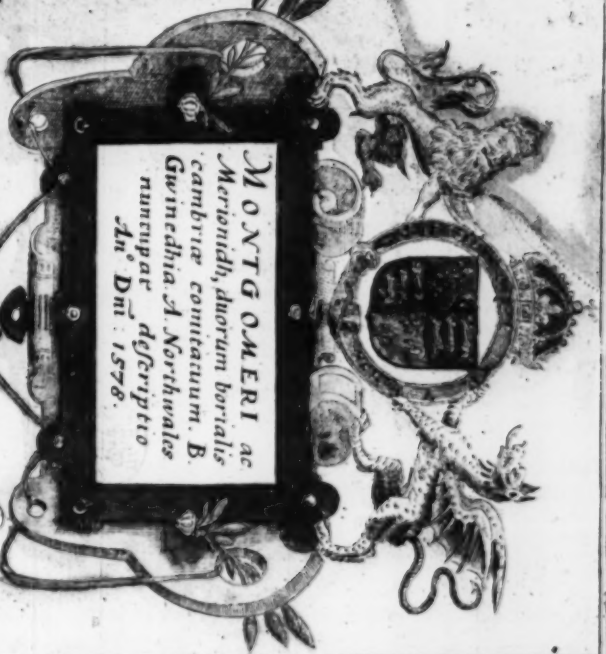 MONTGOMERI ac
Merionidh, duorum borialis
cambriæ comitatuum. B.
Gwinedhia. A. Northwales
nuncupae deſcriptio
An° Dn̄i : 1578.